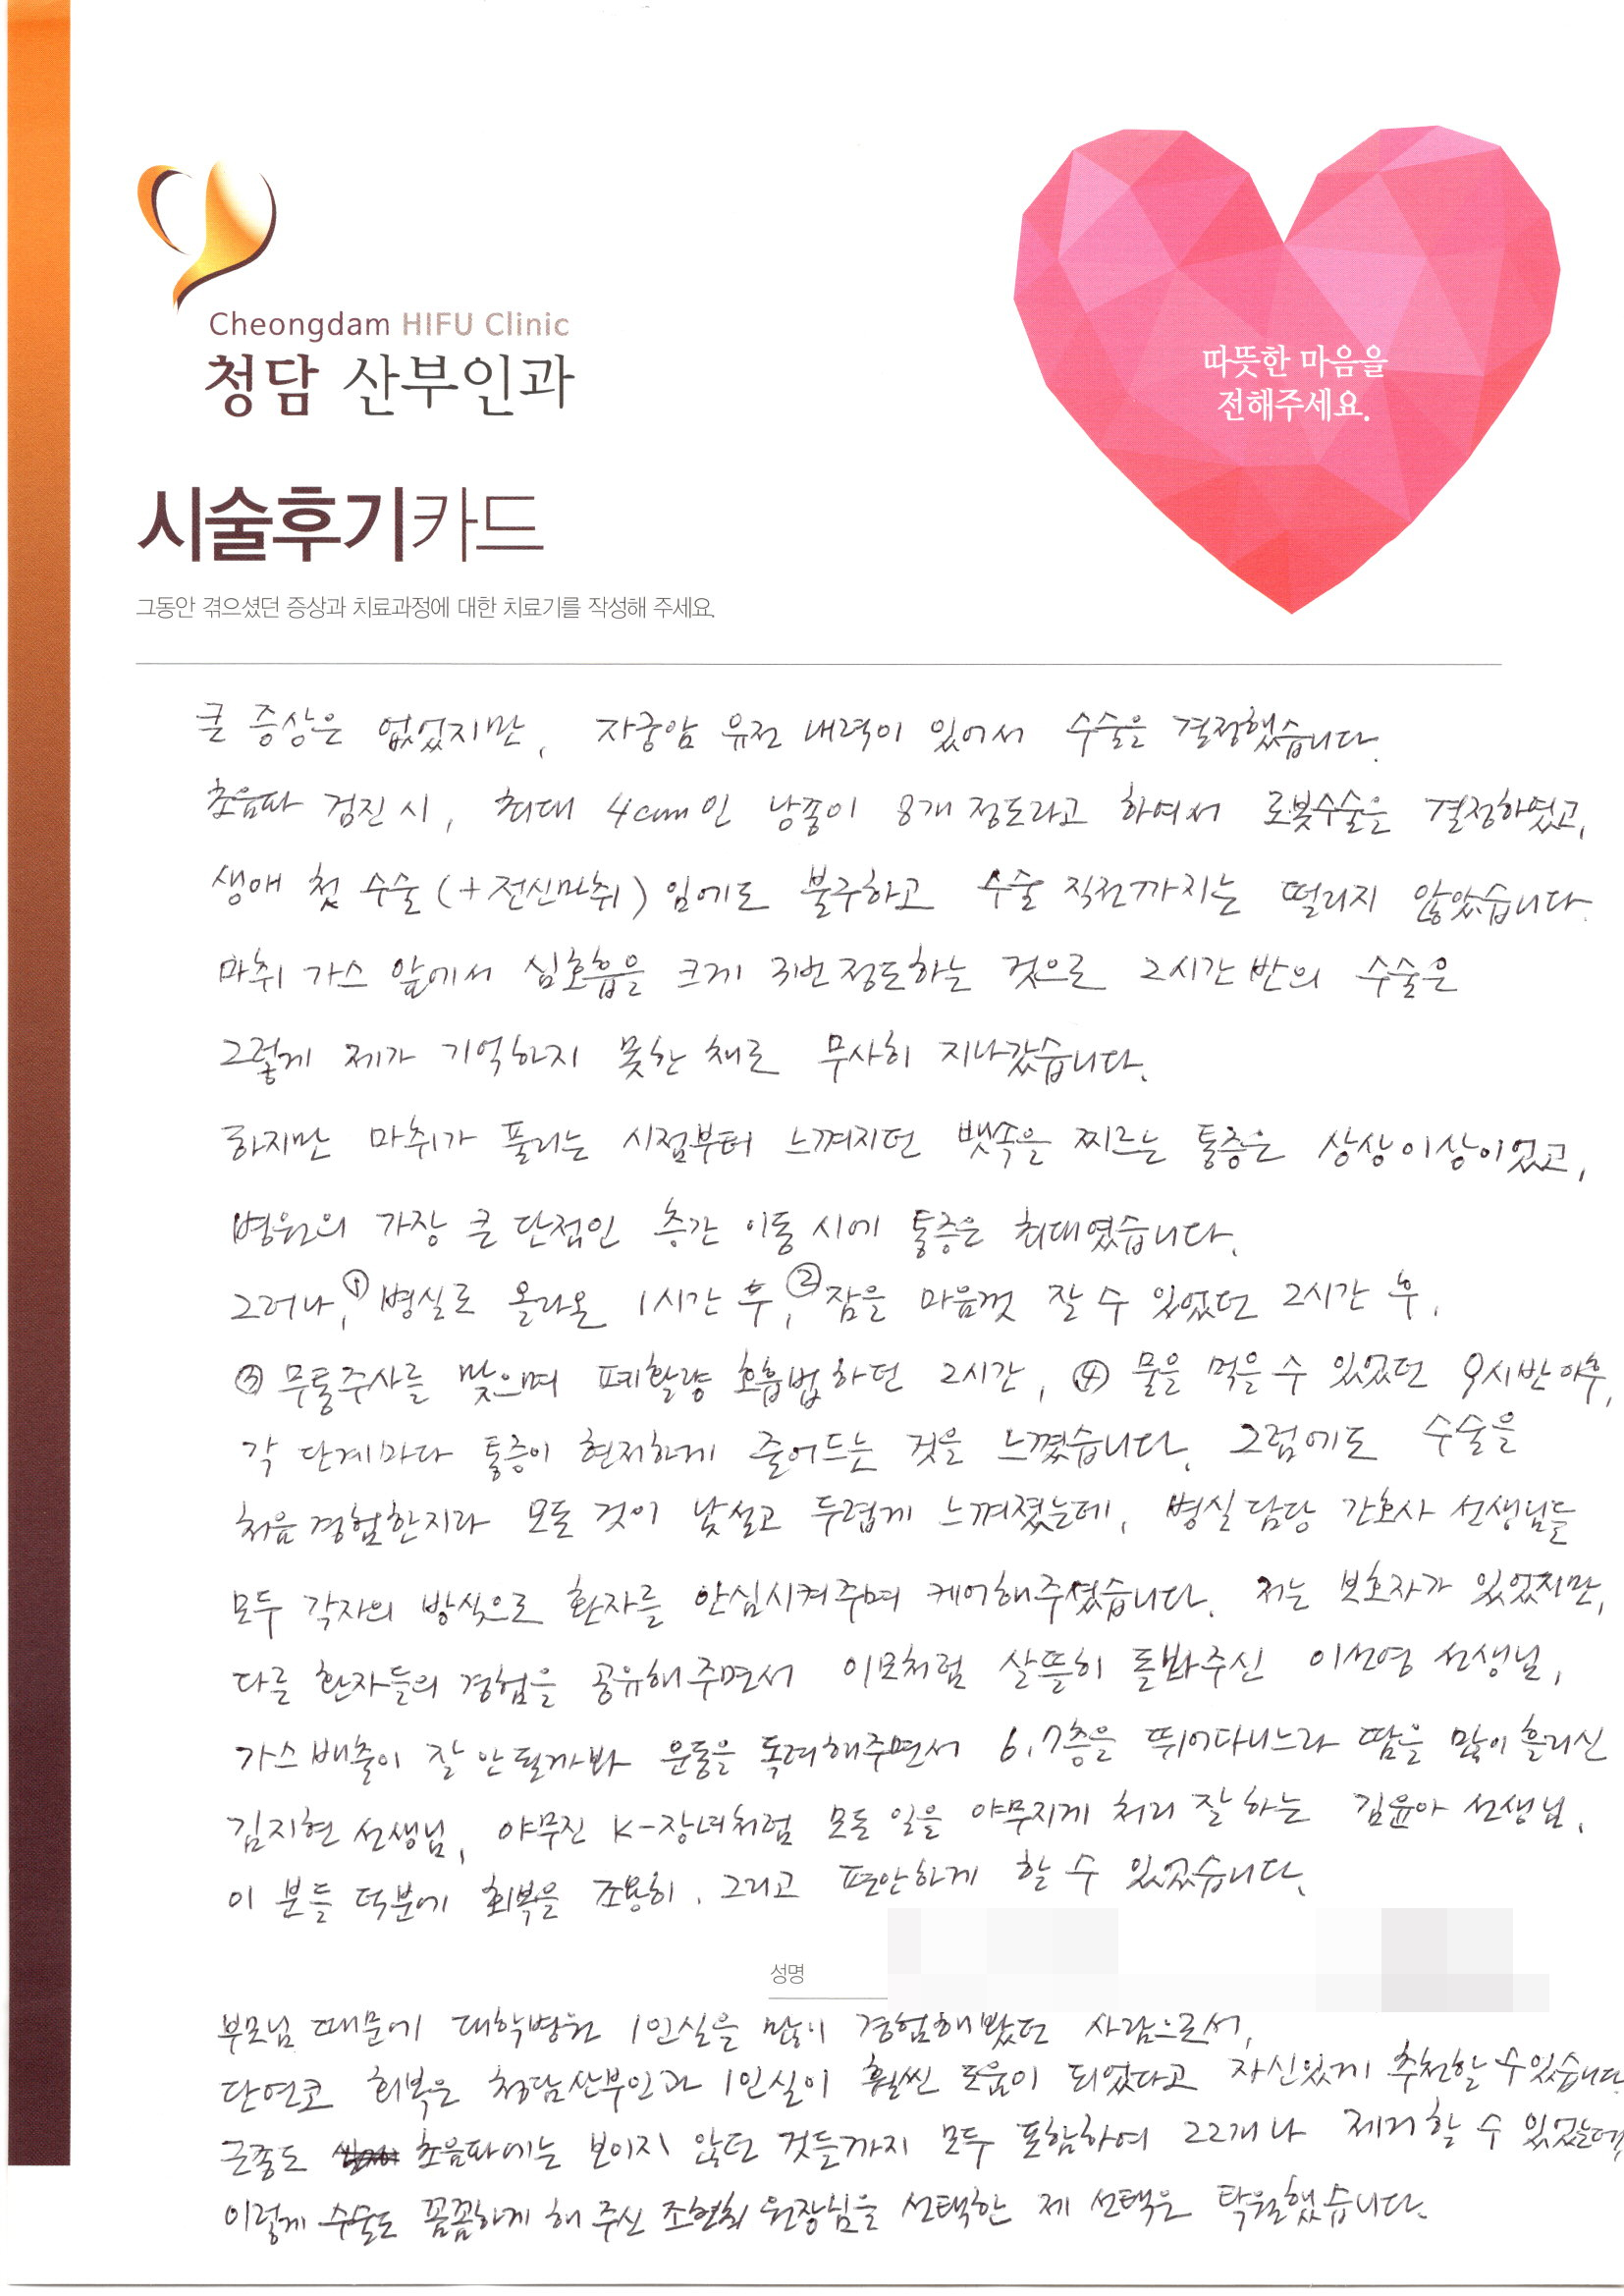 Cheongdam HIFU Clinic
청담 산부인과
따뜻한 마음을
전해주세요.
시술후기카드
그동안 겪으셨던 증상과 치료과정에 대한 치료기를 작성해 주세요.
큰 증상은 없었지만, 자궁암 유전 내력이 있어서 수술을 결정했습니다.
초음파 검진 시, 최대 4cm인 낭종이 8개 정도라고 하여서 로봇수술을 결정하였고,
생애 첫 수술(+전신마취)임에도 불구하고 수술 직전까지는 떨리지 않았습니다.
마취 가스 앞에서 심호흡을 크게 3번정도하는 것으로 2시간 반의 수술은
그렇게 제가 기억하지 못한 채로 무사히 지나갔습니다.
하지만 마취가 풀리는 시점부터 느껴지던 뱃속을 찌르는 통증은 상상이상이었고,
병원의 가장 큰 단점인 층간 이동 시에 통증은 최대였습니다.
그러나, ① 병실로 올라온 1시간 후, ② 잠을 마음껏 잘 수 있었던 2시간 후,
③ 무통주사를 맞으며 폐활량 호흡법하던 2시간, ④ 물을 먹을 수 있었던 9시반 이후,
각 단계마다 통증이 현저하게 줄어드는 것을 느꼈습니다. 그럼에도 수술을
처음 경험한지라 모든 것이 낯설고 두렵게 느껴졌는데, 병실담당 간호사 선생님들
모두 각자의 방식으로 환자를 안심시켜주며 케어해주셨습니다. 저는 보호자가 있었지만,
다른 환자들의 경험을 공유해주면서 이모처럼 살뜰히 돌봐주신 이선영 선생님,
가스배출이 잘 안될까봐 운동을 독려해주면서 6,7층을 뛰어다니느라 땀을 많이 흘리신
김지현 선생님, 야무진 K-장녀처럼 모든 일을 야무지게 처리 잘 하는 김윤아 선생님,
이 분들 덕분에 회복을 조용히, 그리고 편안하게 할 수 있었습니다.
성명
부모님 때문에 대학병원 1인실을 많이 경험해봤던 사람으로서,
단연코 회복은 청담산부인과 1인실이 훨씬 도움이 되었다고 자신있게 추천할 수 있습니다
근종도 초음파에는 보이지 않던 것들까지 모두 포함하여 22개나 제거할 수 있었는데,
이렇게 수술도 꼼꼼하게 해 주신 조현희 원장님을 선택한 제 선택은 탁월했습니다.